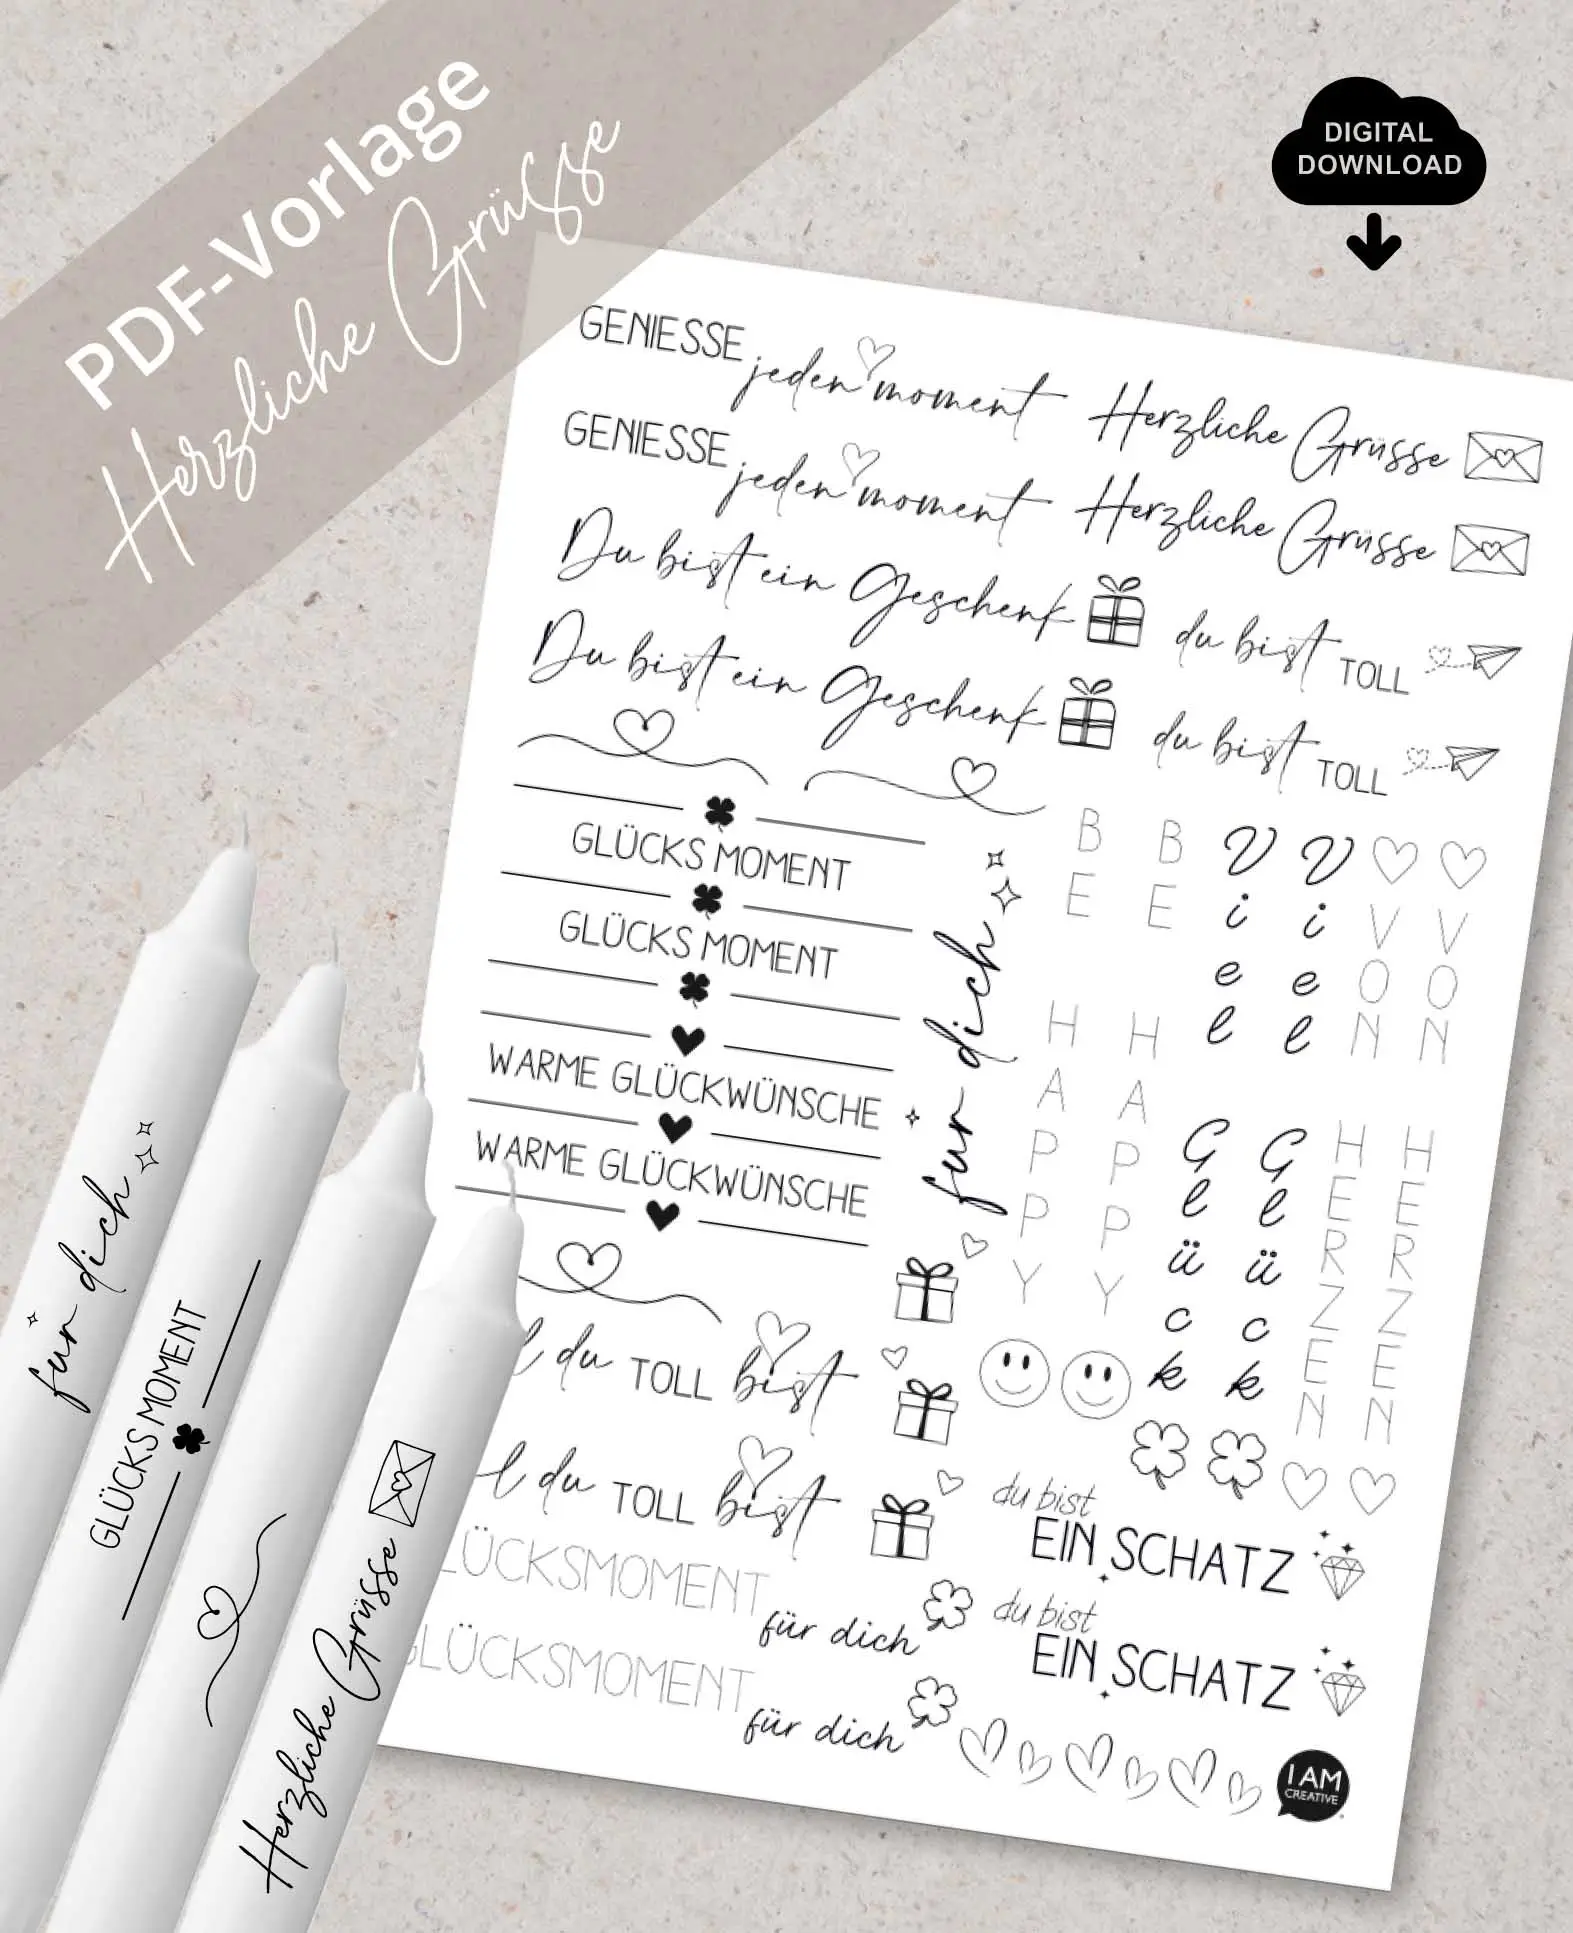 PDF-Vorlage
Herzliche Grüsse
DIGITAL
DOWNLOAD
GENIESSE jeden moment
Herzliche Grüsse
GENIESSE jeden moment
Herzliche Grüsse
Du bist ein Geschenk
du bist TOLL
Du bist ein Geschenk
du bist TOLL
GLÜCKS MOMENT
GLÜCKS MOMENT
WARME GLÜCKWÜNSCHE
WARME GLÜCKWÜNSCHE
für dich
BE HAPPY
BE HAPPY
Viel Glück
Viel Glück
VON HERZEN
VON HERZEN
du TOLL bist
du TOLL bist
du bist
EIN SCHATZ
GLÜCKSMOMENT
für dich
du bist
EIN SCHATZ
GLÜCKSMOMENT
für dich
I AM
CREATIVE
für dich
GLÜCKS MOMENT
Herzliche Grüsse